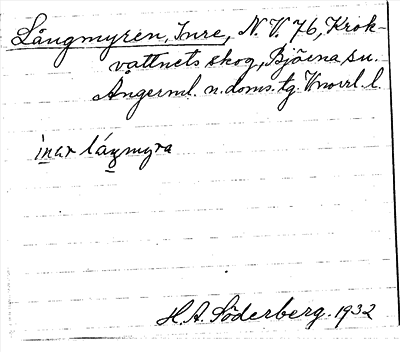 Långmyren, Inre, N.V. 76, Krok-
vattnets skog, Bjärna sn.
Ångerml. n. doms. tg. Vnorrl. l.
inar láŋmyra
H.A. Söderberg. 1932